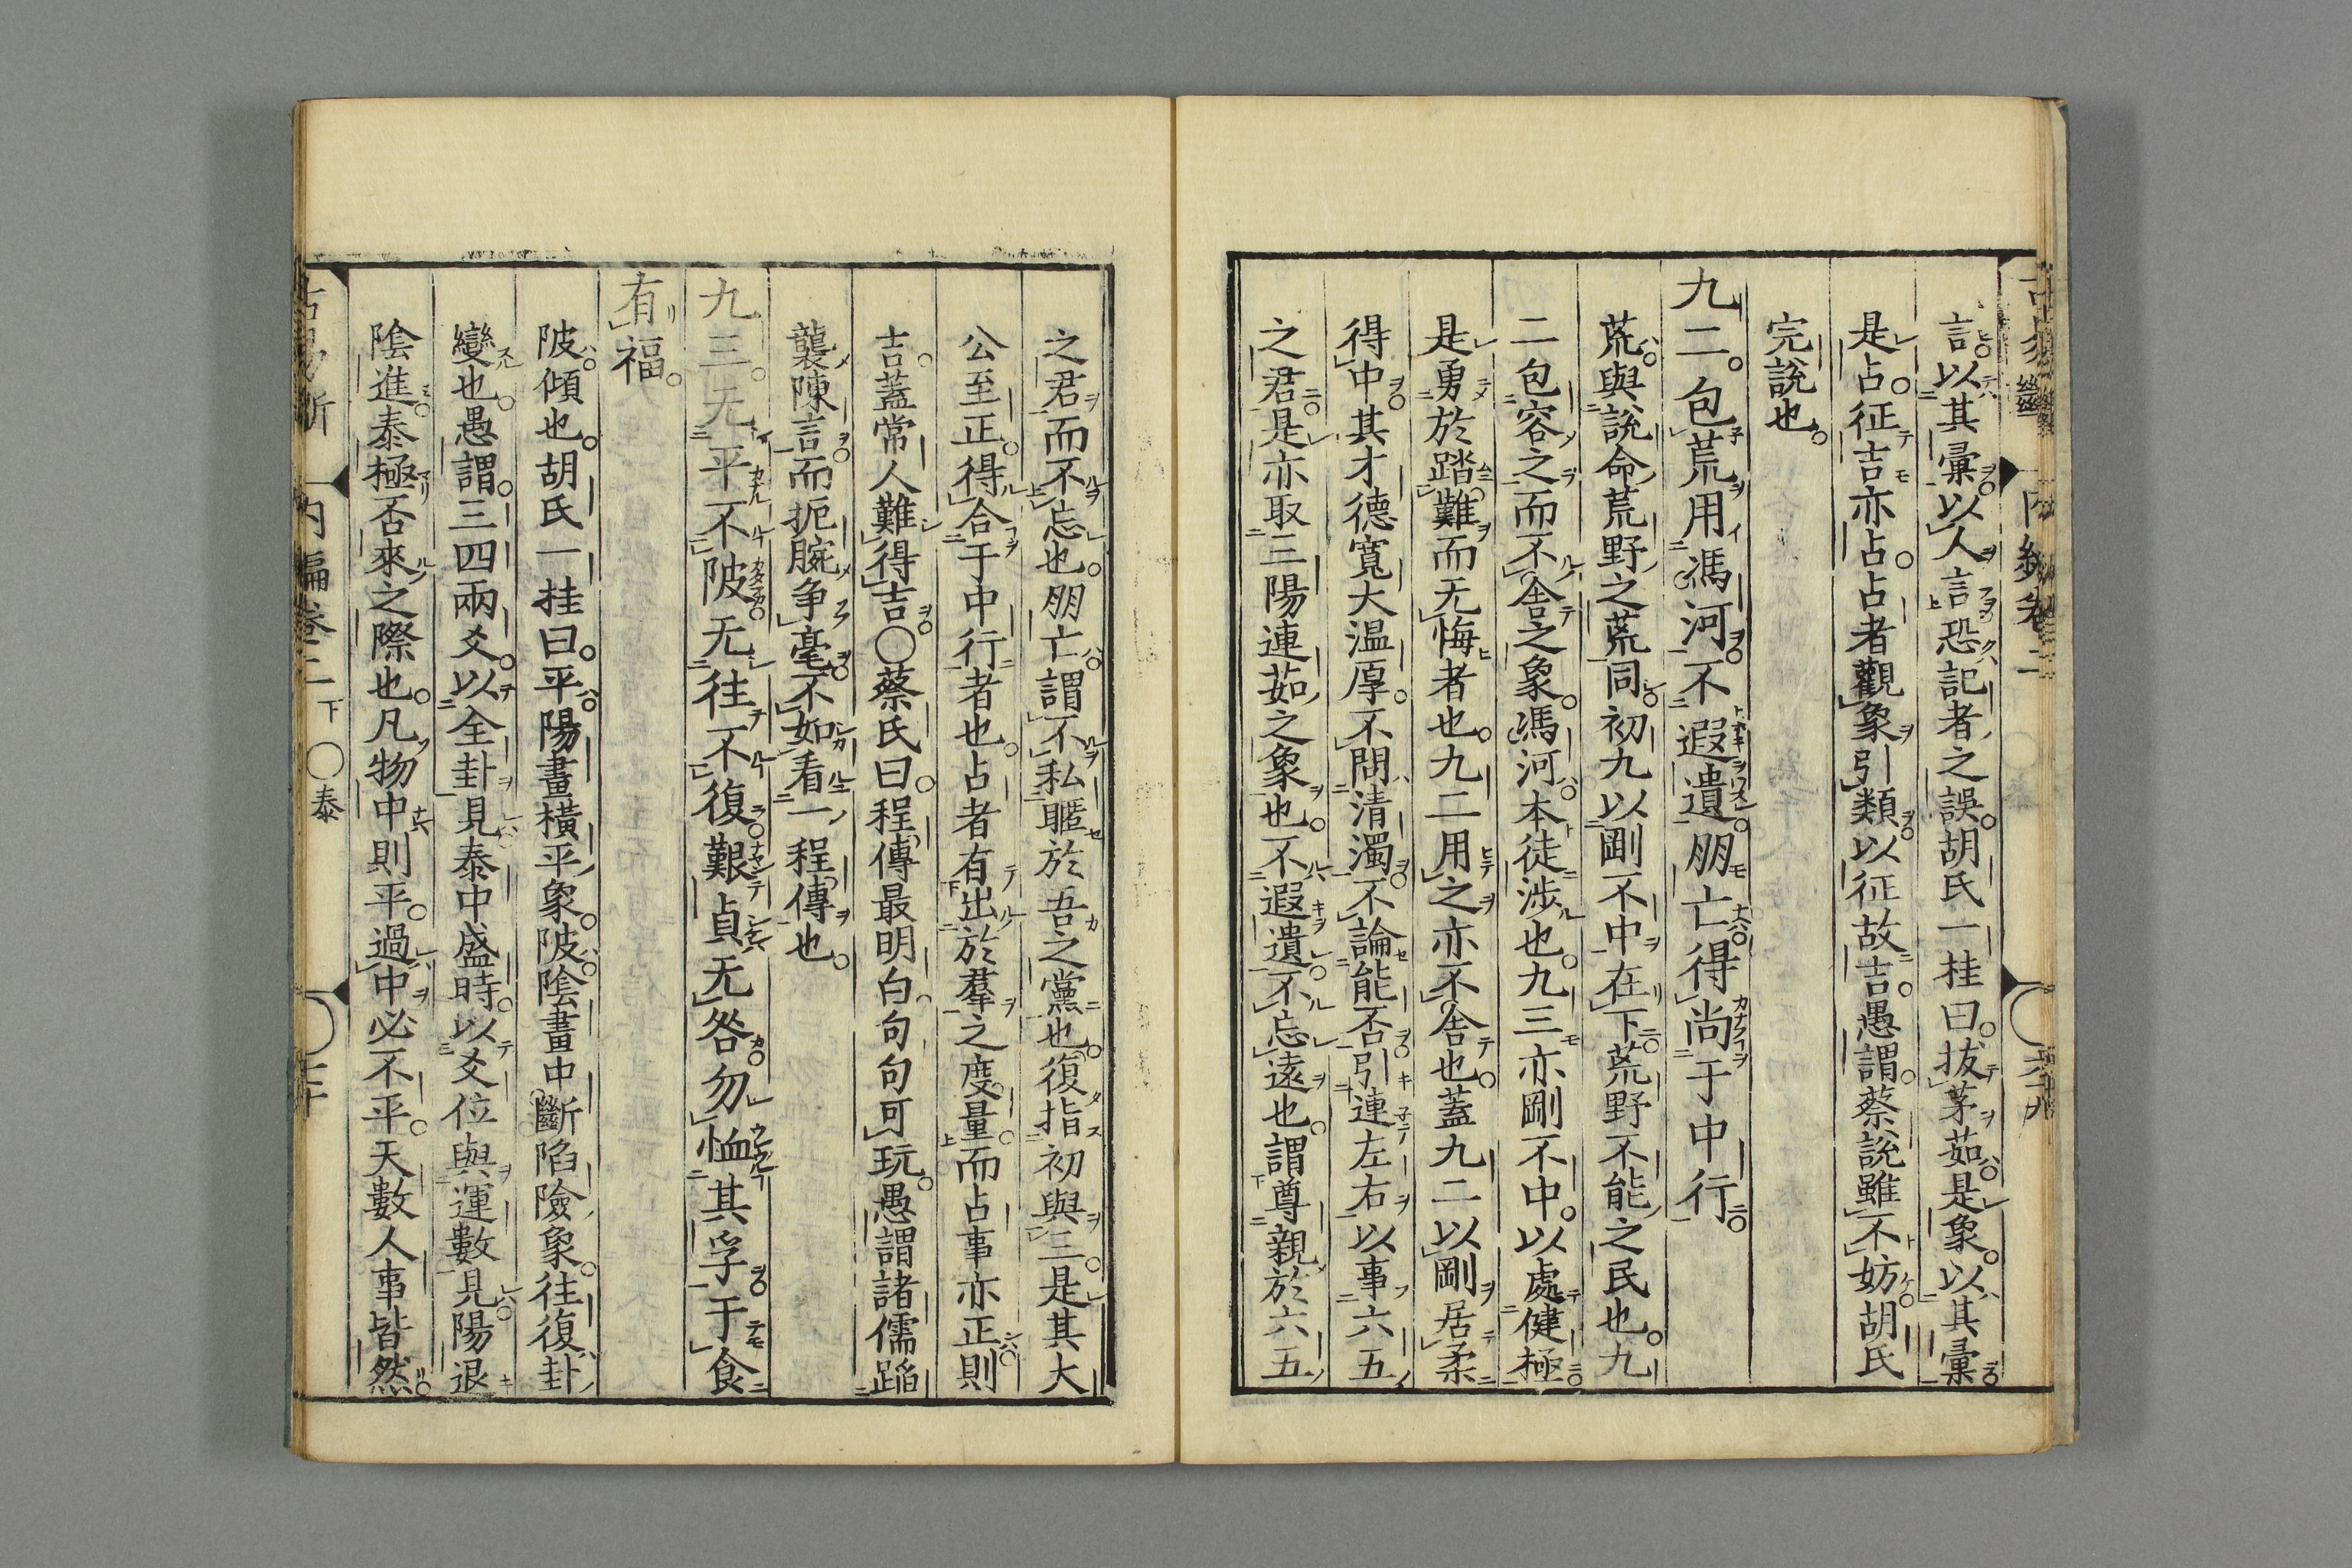 言以其彙以人言恐記者之誤胡氏一桂曰拔茅茹是象以其彙
是占征吉亦占占者觀象引類以征故吉愚謂蔡說雖不妨胡氏
完說也
九二包荒用馮河不遐遺朋亡得尚于中行
荒與說命荒野之荒同初九以剛不中在下荒野不能之民也九
二包容之而不舍之象馮河本徒涉也九三亦剛不中以處健極
是勇於蹈難而无悔者也九二用之亦不舍也蓋九二以剛居柔
得中其才德寬大温厚不問清濁不論能否引連左右以事六五
之君是亦取三陽連茹之象也不遐遺不忘遠也謂尊親於六五
之君而不忘也朋亡謂不私暱於吾之黨也復指初與三是其大
公至正得合于中行者也占者有出於羣之度量而占事亦正則
吉蓋常人難得吉○蔡氏曰程傳最明白句句可玩愚謂諸儒蹈
襲陳言而扼腕争毫不如看一程傳也
九三无平不陂无往不復艱貞无咎勿恤其孚于食
有福
陂傾也胡氏一桂曰平陽畫橫平象陂陰畫中斷陷險象往復卦
變也愚謂三四兩爻以全卦見泰中盛時以爻位與運數見陽退
陰進泰極否來之際也凡物中則平過中必不平天數人事皆然
内編卷二 下 ○泰